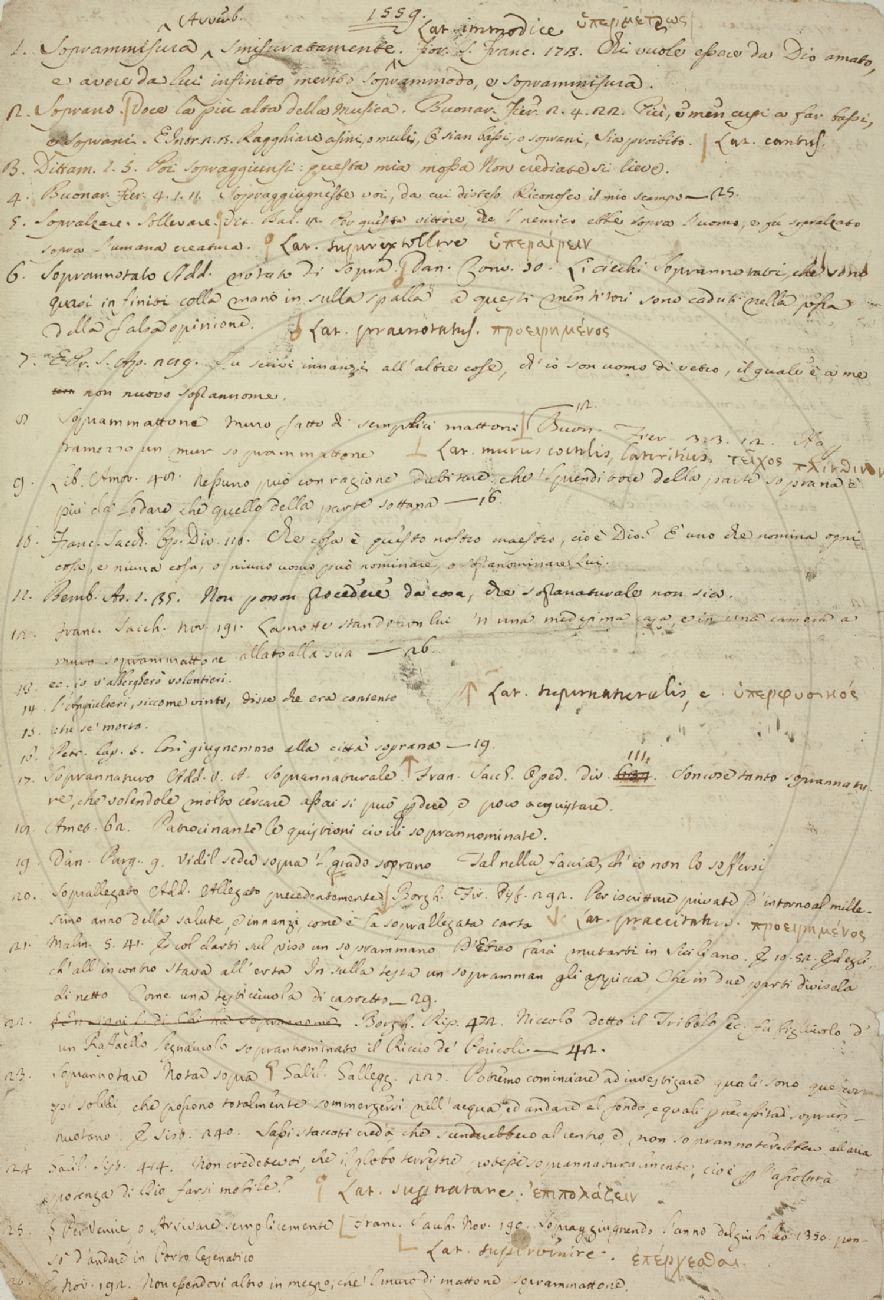 1559.
Avverb. Lat. immodice ὑπερμέτρως
1. Soprammisura Smisuratamente. Fior. S. Franc. 173. Chi vuole essere da Dio amato,
e avere da lui infinito merito soprammodo, e soprammisura.
2. Soprano. Voce la più alta della Musica. Buonar. Fier. 2. 4. 22. Più, o men cupi a far bassi,
e soprani. E Intr. 2. 3. Ragghiare asini, o muli, E sian bassi, o soprani, Sia proibito. Lat. cantus.
3. Dittam. 1. 5. Poi sopraggiunsi: questa mia mossa Non crediate si lieve.
4. Buonar. Fier. 4. 1. 11. Sopraggiugneste voi, da cui disteso Riconosco il mio scampo — 25.
5. Sopralzare. Sollevare. questa vittore, che l'nemico ebbe sopra l'uomo, e fu sopralzato
sopra l'umana creatura. Lat. superextollere ὑπεραίρειν
6. Soprannotato Add. notato di sopra. Dan. Conv. 30. Li ciechi soprannotati, che sono
quasi infiniti colla mano in sulla spalla a questi mentitori sono caduti nella fossa
della falsa opinione. Lat. praenotatus. προειρημένος
7. Tu scrivi innanzi all'altre cose, ch'io son uomo di vetro, il quale è a me
non nuovo soprannome.
8. Soprammattone Muro fatto di semplici mattoni Buon. Fier. 3. 3. 12.
tramezzo un mur soprammattone Lat. murus coctilis, lateritius, τεῖχος πλίνθινον
9. Lib. Amor. 48. Nessuno può con ragione dubitare, che l'prenditore della parte soprana è
più da lodare che quello della parte sottana — 16.
10. Franc. Sacch. Op. Div. 118. Che cosa è questo nostro maestro, cioè Dio? È uno che nomina ogni
cosa, e niuna cosa, o niuno uomo può nominare, o soprannominare Lui.
11. Bemb. As. 1. 35. Non posson procedere da cosa, che soprannaturale non sia.
12. Franc. Sacch. Nov. 191. La notte stando con lui 'n una medesima casa, e in una camera a
muro soprammattone allato alla sua — 26.
13. ec. Io v'albergherò volentieri.
14. l'Angiulieri, siccome vinto, disse che era contento Lat. supernaturalis, e ὑπερφυσικός
15. che se' morto.
16. Petr. cap. 5. Così giugnemmo alla città soprana — 19.
17. Soprannaturo Add. V. A. Soprannaturale Fran. Sacch. Oped. div. 111. Son cose tanto soprannatu-
re, che volendole molto cercare assai si può perdere, e poco acquistare.
18. Amet. 62. Patrocinante le quistioni civili soprannominate.
19. Dan. Purg. 9. Vidil seder sopra 'l grado soprano Tal nella faccia, ch'io non lo soffersi
20. Soprallegato Add. Allegato precedentemente Borgh. Fir. Disf. 292. Per iscritture private d'intorno al mille-
simo anno della salute, e innanzi, come è la soprallegata carta Lat. praecitatus. προειρημένος
21. Malm. 5. 41. E col darti sul viso un soprammano D'Ebreo farà mutarti in Siciliano. E 19. 52. Ed egli,
ch'all'incontro stava all'erta In sulla testa un sopramman gli appicca Che in due parti divisela
di netto Come una testicciuola di capretto — 29.
22. Borgh. Rip. 472. Niccolò detto il Tribolo ec. fu figliuolo d'
un Raffaello legnaiuolo soprannominato il Riccio de' Pericoli. — 42.
23. Soprannotare Notar sopra Galil. Gallegg. 22. Potremo cominciare ad investigare quali sono que' cor-
pi solidi che possono totalmente sommergersi nell'acqua ed andare al fondo, e quali per necessità soprannuo-
tano. E Sist. 240. Sassi staccati credo che scenderebbero al centro, e non soprannoterebbero all'aria
24. Galil. Sist. 414. Non credete voi, che il globo terrestre potesse soprannaturalmente, cioè per l'assoluta
potenza di Dio farsi mobile? Lat. supernatare. ἐπιπολάζειν
25. § Per Venire, o Arrivare semplicemente Franc. Sacch. Nov. 190. Sopraggiugnendo l'anno del giubileo 1350. pen-
sò d'andare in Porto Cesenatico Lat. supervenire. ἐπέρχεσθαι.
26. E Nov. 192. Non essendovi altro in mezzo, che l'muro di mattone soprammattone.